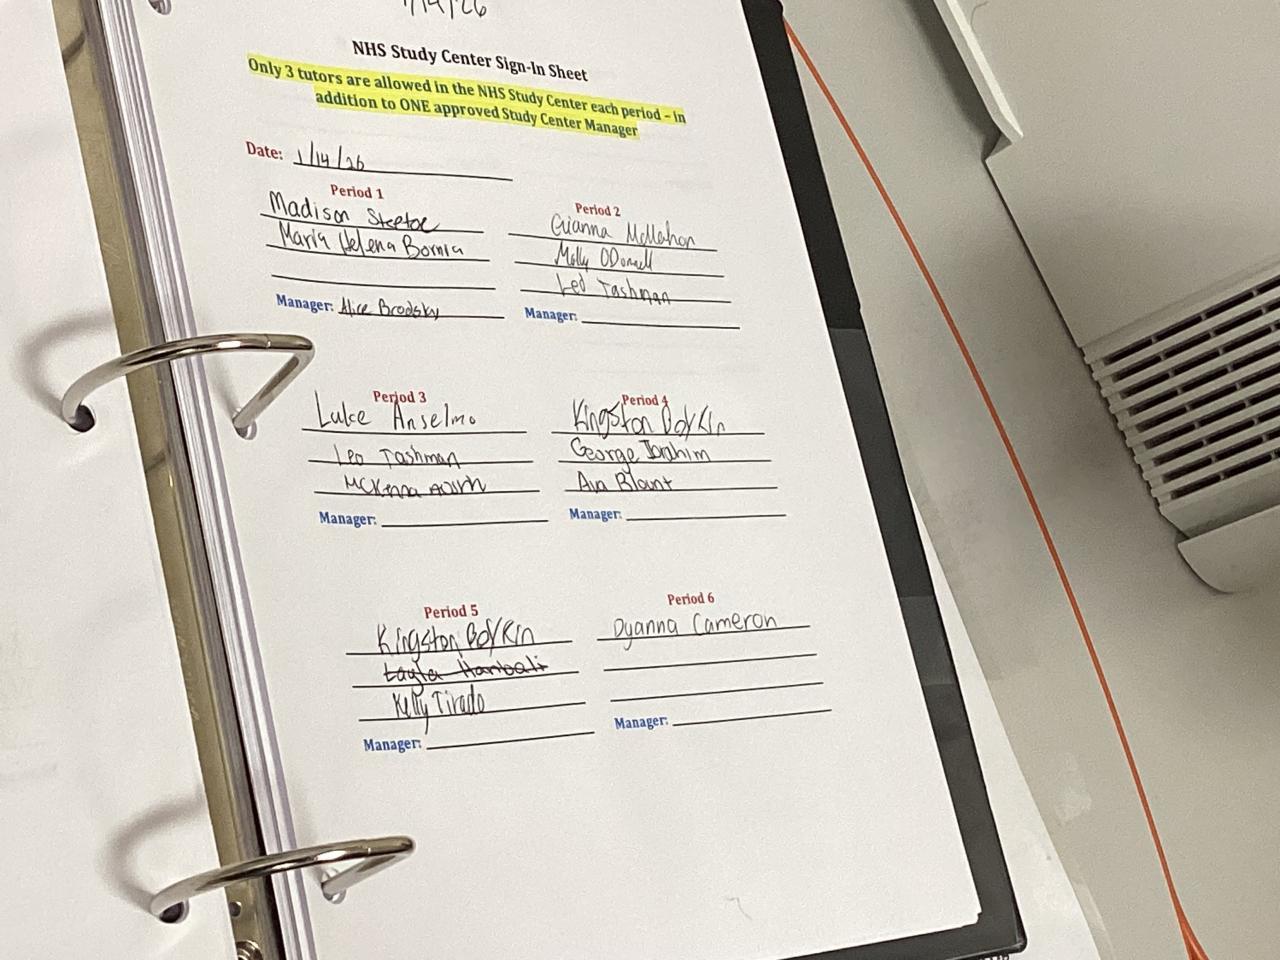 1/14/26
NHS Study Center Sign-In Sheet
Only 3 tutors are allowed in the NHS Study Center each period – in
addition to ONE approved Study Center Manager
Date: 1/14/26
Period 1
Madison Steptoe
Maria Helena Bornia
Manager: Alice Brodsky
Period 2
Gianna McMahon
Molly ODonnell
Leo Tashman
Manager:
Period 3
Luke Anselmo
Leo Tashman
McKenna
Manager:
Period 4
Kingston Boykin
George Ibrahim
Ava Blount
Manager:
Period 5
Kingston Boykin
Layla
Kelly Tirado
Manager:
Period 6
Dyanna Cameron
Manager: